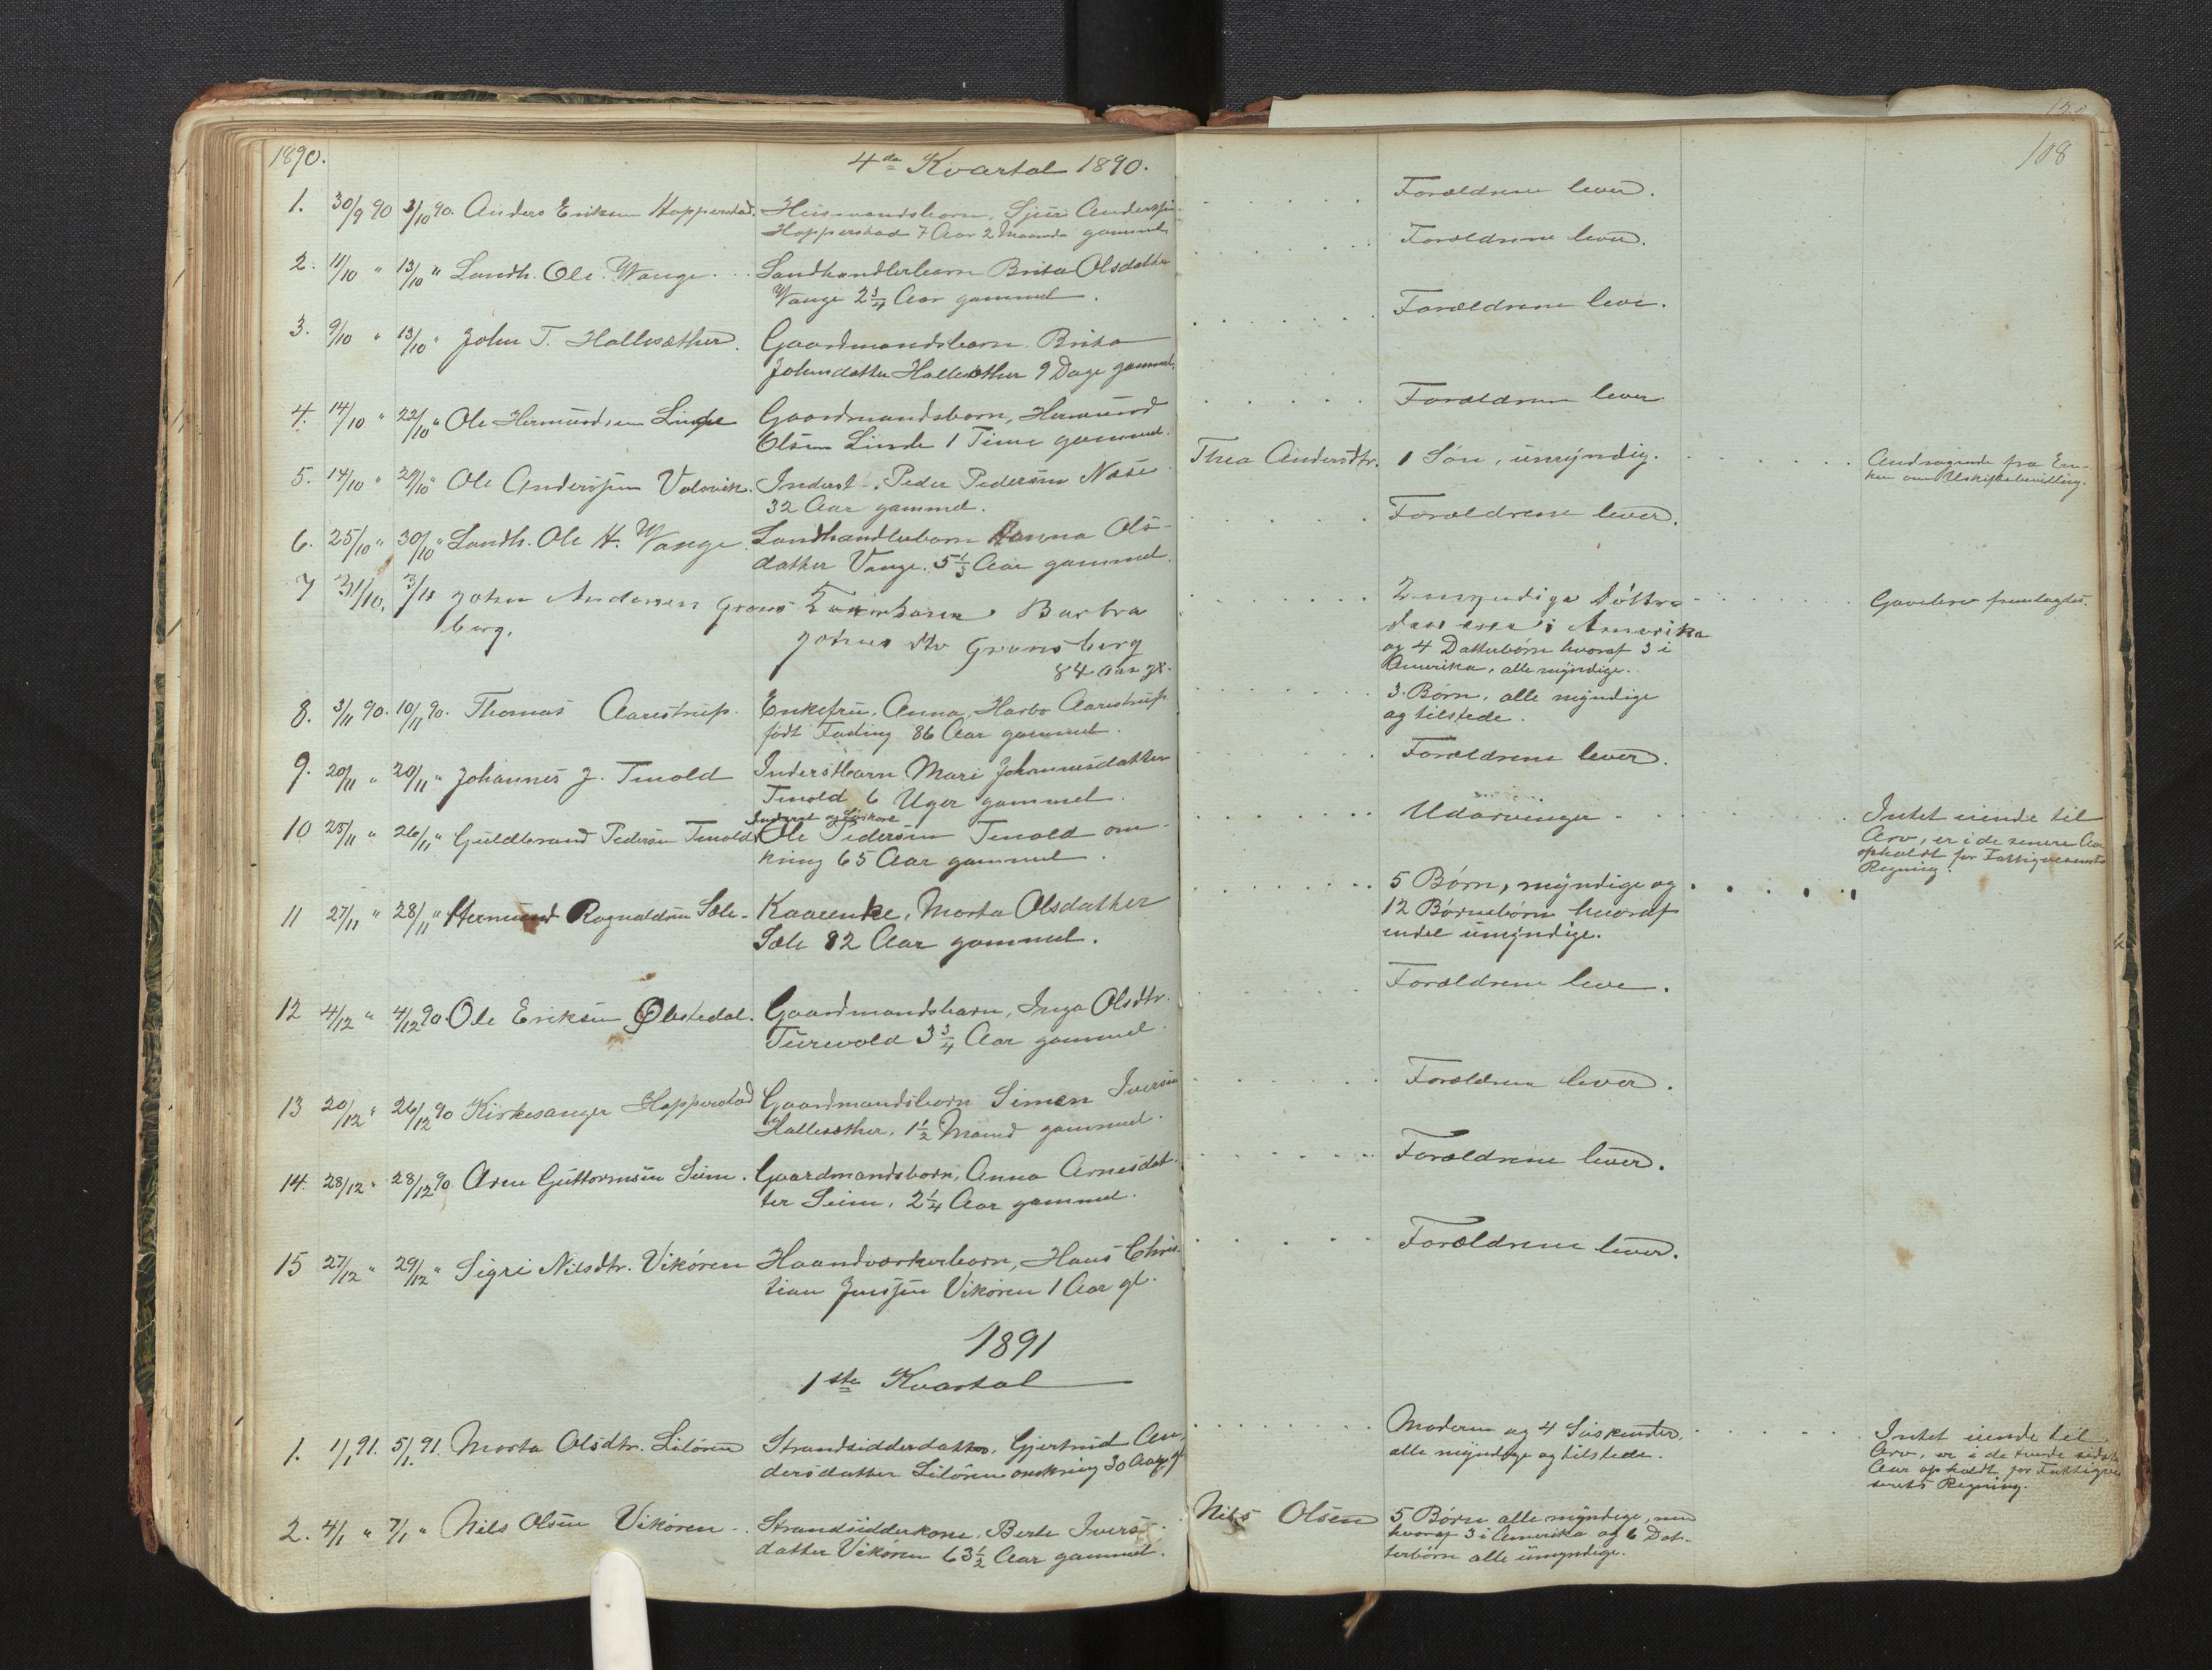 108
1890. 4de Kvartal 1890.
1. 30/9 90 3/10 90. Anders Eriksen Hopperstad. Husmandsbarn, Sjur Andersen . . . . . Forældrene lever.
Hopperstad 7 Aar 2 Maaneder gammel
2. 11/10 " 13/10 " Landh. Ole Vange . . . Landhandlerbarn Brita Olsdatter . . . . Forældrene lever.
Vange 2 3/4 Aar gammel.
3. 9/10 " 13/10 " John T. Hallesæther. Gaardmandsbarn Brita . . . . . . Forældrene leve.
Johnsdatter Hallesæther 9 Dage gammel.
4. 14/10 " 22/10 " Ole Hermundsen Linde Gaardmandsbarn, Hermund . . . . . Forældrene lever
Olsen Linde 1 Time gammel.
5. 14/10 " 29/10 " Ole Andersen Valsvik. Inderst. Peder Pedersen Næse Thea Andersdtr. 1 Søn, umyndig. . . . . . Andragende fra En-
32 Aar gammel. ken om Uskiftebevilling.
6. 25/10 " 30/10 " Landh. Ole H. Vange. Landhandlerbarn Hanna Ols- . . . . . Forældrene lever.
datter Vange. 5 1/3 Aar gammel.
7 31/10, 3/11 John Andersen Grons- Barbra . . . . . . 2 myndige Døttre . . . . . . Gavebrev fremlagdes.
berg, Johnes dtr Gronsberg i Amerika
84 Aar gl. og 4 Datterbørn hvoraf 3 i
Amerika, alle myndige.
8. 3/11 90. 10/11 90. Thomas Aarestrup. Enkefru, Anna, Harbo Aarestrup . . . . . . 3 Børn, alle myndige
født Fasting 86 Aar gammel. og tilstede.
9. 20/11 " 20/11 " Johannes J. Tenold Inderstbarn Mari Johannesdatter . . . . . Forældrene lever.
Tenold 6 Uger gammel.
Inderst og
10 25/11 " 26/11 " Guldbrand Pedersen Tenold Ole Pedersen Tenold om- . . . . . . Udarvinger . . . . . . Intet eiende til
kring 65 Aar gammel. Arv, er i de senere Aar
opholdt for Fattigvæsenets
Regning.
11 27/11 " 28/11 " Hermund Ragnaldsen Sæle. Kaarenke, Marta Olsdatter . . . . . . 5 Børn, myndige og . . . . .
Sæle 82 Aar gammel. 12 Børnebørn hvoraf
endel umyndige.
12 4/12 " 4/12 90. Ole Eriksen Ølstedal. Gaardmandsbarn, Inga Olsdtr. . . . . . Forældrene leve.
Turevold 3 3/4 Aar gammel.
13 20/12 " 26/12 90 Kirkesanger Hopperstad Gaardmandsbarn Simen Iversen . . . . . Forældrene lever.
Hallesæther, 1 1/2 Maaned gammel.
14. 28/12 " 28/12 90 Arne Guttormsen Seim. Gaardmandsbarn, Anna Arnesdat- . . . . . . Forældrene lever.
ter Seim, 2 1/4 Aar gammel.
15 27/12 " 29/12 " Sigri Nilsdtr. Vikøren Haandværkerbarn, Hans Chris- . . . . . Forældrene lever.
tian Jenssen Vikøren 1 Aar gl.
1891
1ste Kvartal
1. 1/1 91. 5/1 91. Marta Olsdtr. Liløren Strandsidderdatter, Gjertrud An- . . . . . . Moderen og 4 Søskender, . . . . . . Intet eiende til
dersdatter Liløren omkring 30 Aar gl alle myndige og tilstede. Arv, er i de sidste
Aar opholdt for Fattigvæ-
senets Regning.
2. 4/1 " 7/1 " Nils Olsen Vikøren . . Strandsidderkone, Berte Ivers- Nils Olsen 5 Børn alle myndige,
datter Vikøren 63 1/2 Aar gammel. hvoraf 3 i Amerika og 6 Dat-
terbørn alle umyndige.